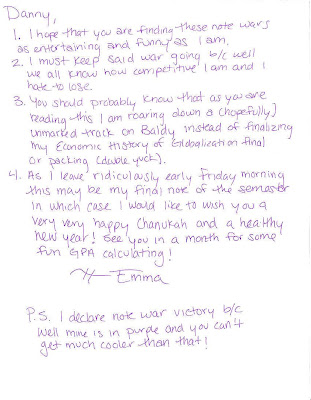 Danny,
1. I hope that you are finding these note wars
as entertaining and funny as I am.
2. I must keep said war going b/c well
we all know how competitive I am and I
hate to lose.
3. You should probably know that as you are
reading this I am roaring down a (hopefully)
unmarked track on Baldy instead of finalizing
my Economic History of Globalization final
or packing (double yuck).
4. As I leave ridiculously early Friday morning
this may be my final note of the semester
in which case I would like to wish you a
very very happy Chanukah and a healthy
new year! See you in a month for some
fun GPA calculating!
Emma
P.S. I declare note war victory b/c
well mine is in purple and you can't
get much cooler than that!